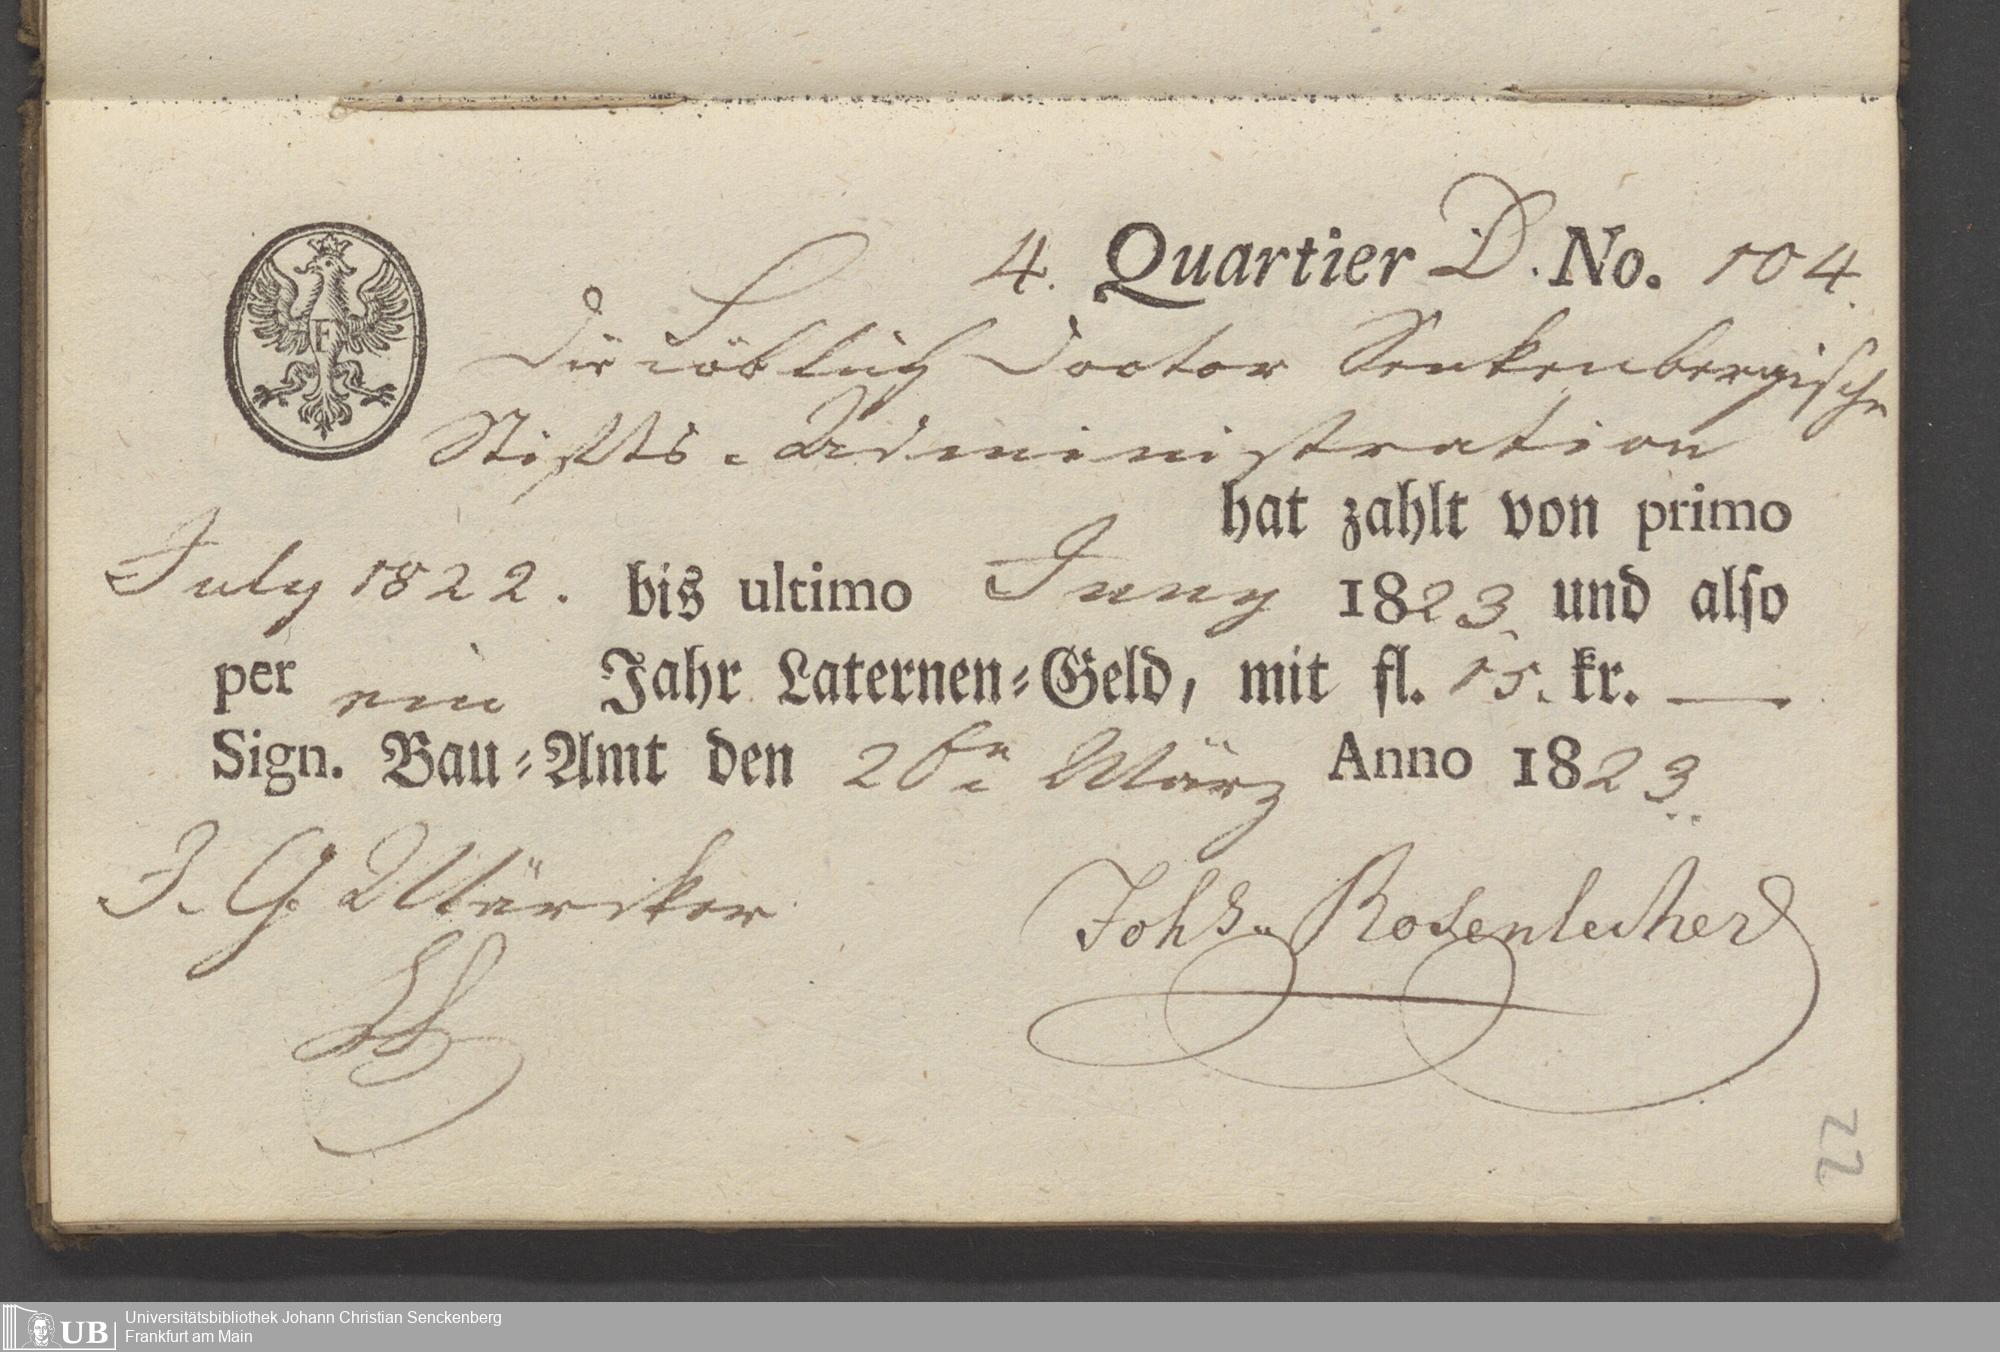 4. Quartier D. No. 104.
Die Löblich Doctor Senkenbergische
Stiffts-Administration
hat zahlt von primo
July 1822. bis ultimo Juny 1823. und also
per ein Jahr Laternen-Geld, mit fl. 15. kr. —
Sign. Bau-Amt den 26n März Anno 1823.
J. G. Märcker Johs. Rosenlecher
F
22
UB
Universitätsbibliothek Johann Christian Senckenberg
Frankfurt am Main